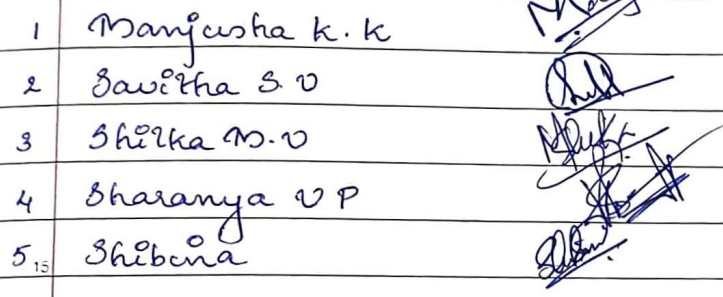 1 Manjusha K. K
2 Savitha S. V
3 Shilka M. V
4 Sharanya V P
5 15 Shibina